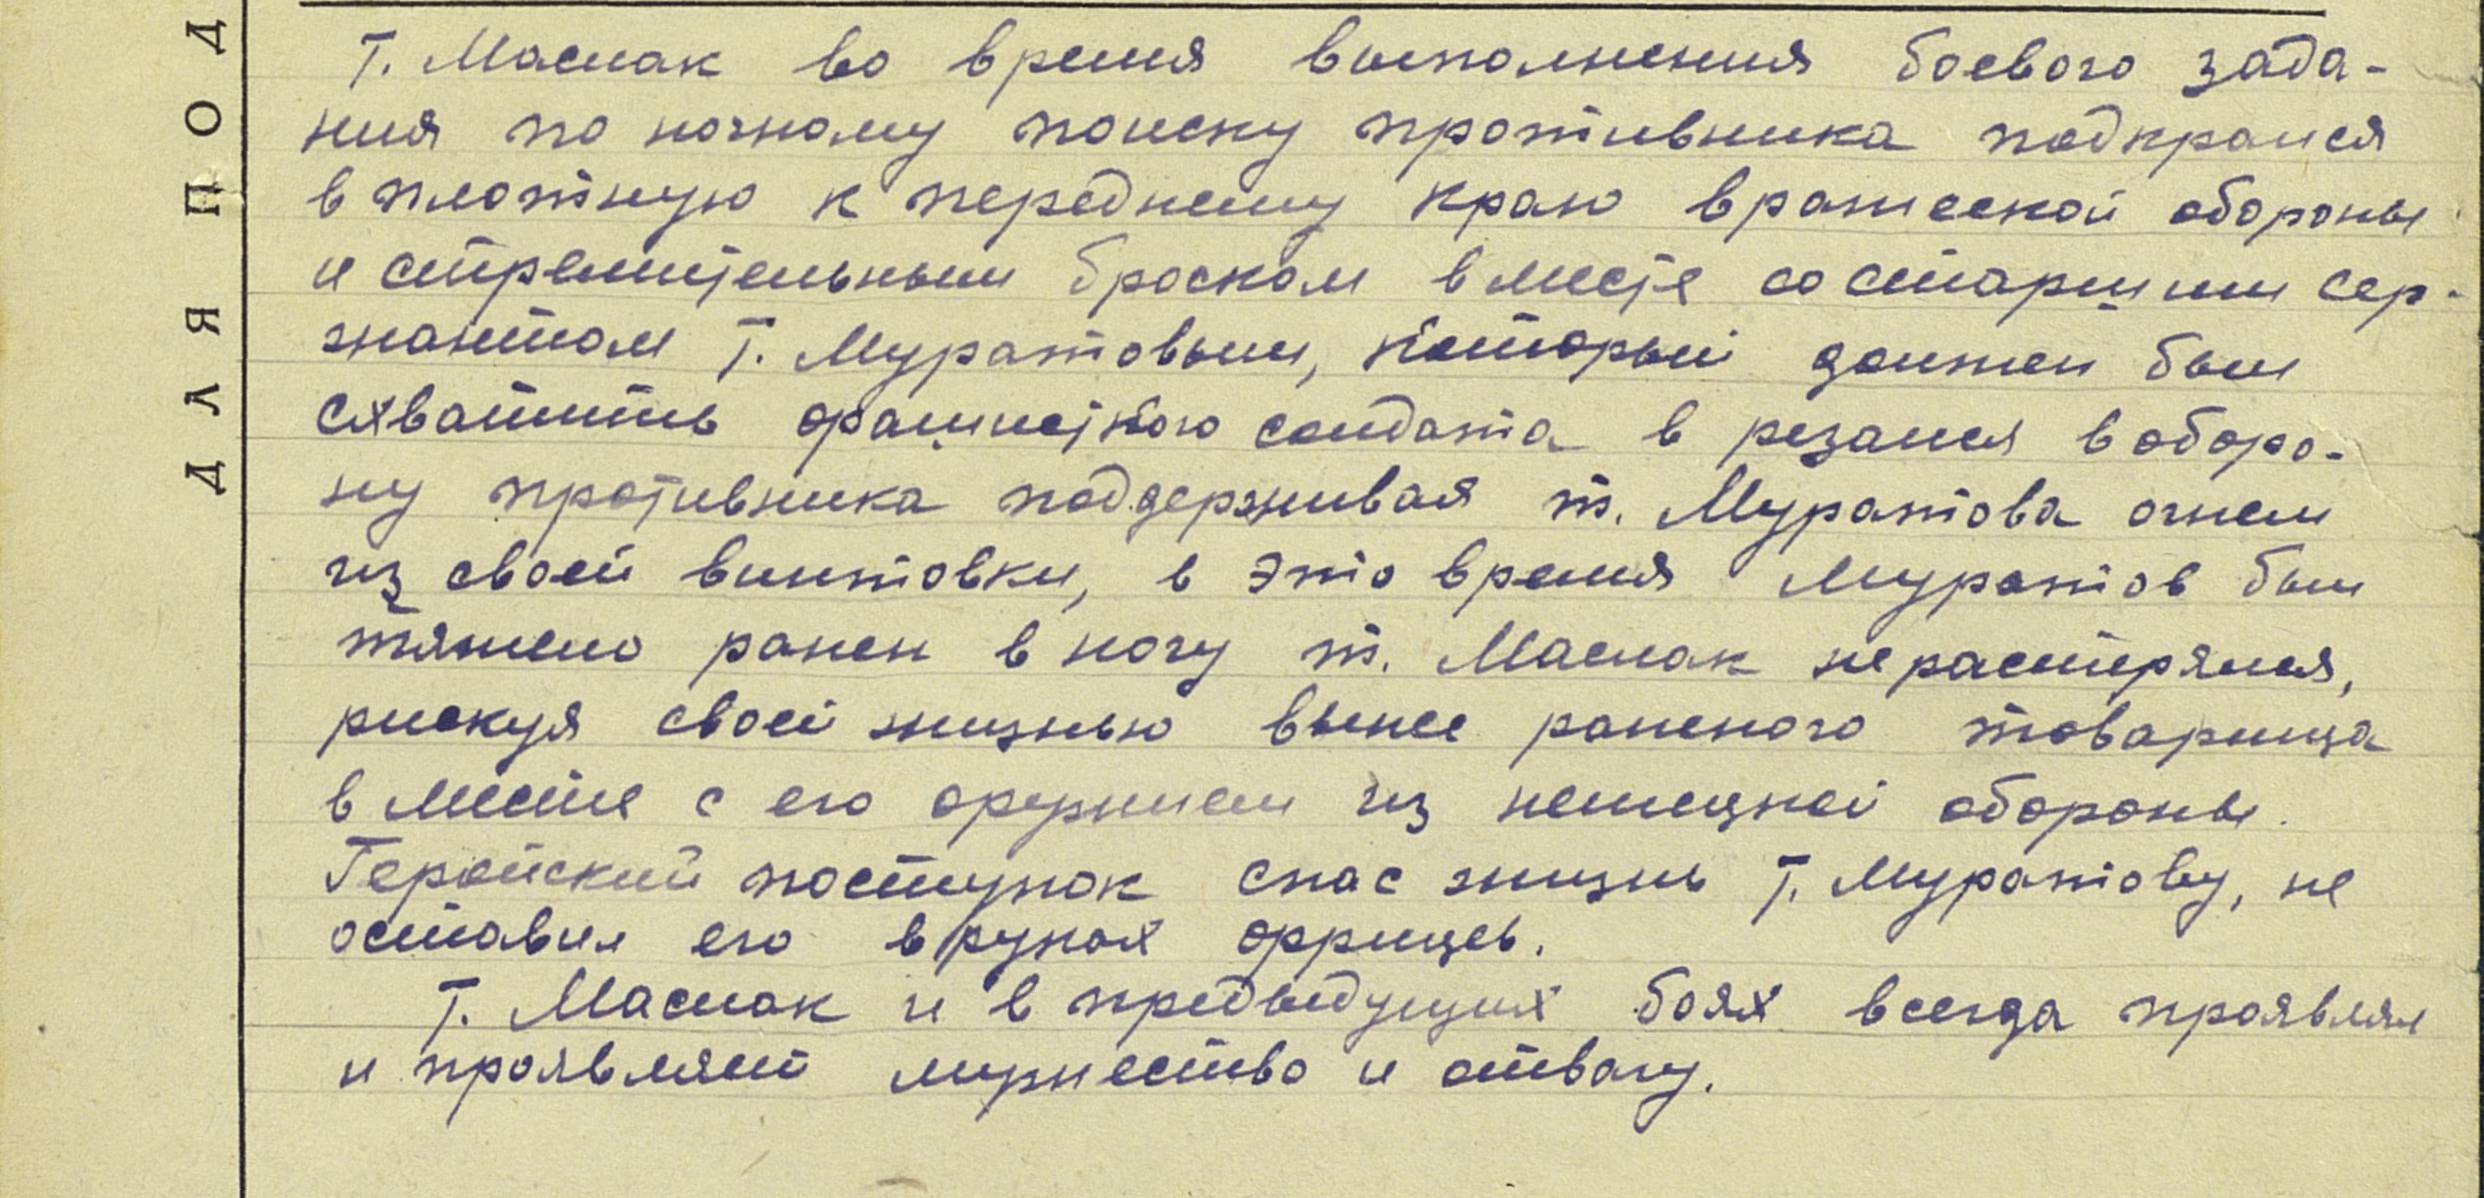 ДЛЯ ПОД
Т. Маслак во время выполнения боевого зада-
ния по ночному поиску противника подкрался
в плотную к переднему краю вражеской обороны
и стремительным броском вместе со старшим сер-
жантом т. Муратовым, который должен был
схватить фашисткого солдата в резался в оборо-
ну противника поддерживая т. Муратова огнем
из своей винтовки, в это время Муратов был
тяжело ранен в ногу т. Маслак не растерялся,
рискуя своей жизнью вынес раненого товарища
в месте с его оружием из немецкой обороны.
Геройский поступок спас жизнь т. Муратову, не
оставил его в руках фрицев.
Т. Маслак и в предыдущих боях всегда проявлял
и проявляет мужество и отвагу.